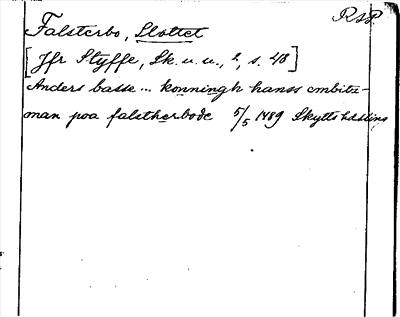 RSP.
Falsterbo, Slottet
[Jfr Styffe, Sk. u. u., 2, s. 48]
Anders basse ... konningh hanss embitz-
man poa falstherbode 5/5 1489 Skytts hd